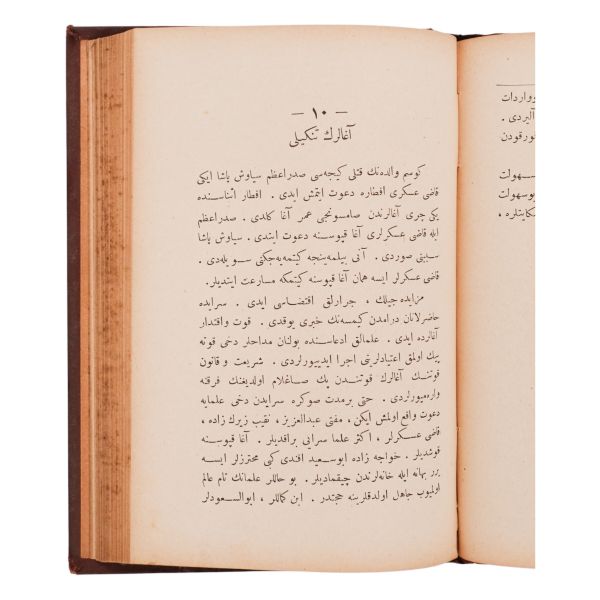 — ١٠ —
آغالرك تنكيلی
كوسم والده‌نك قتلی كیجه‌سی صدراعظم سیاوش پاشا ایكی
قاضی عسكری افطاره دعوت ایتمش ایدی . افطار اثناسنده
یكی چری آغالرندن صامسونجی عمر آغا كلدی . صدراعظم
ایله قاضی عسكرلری آغا قپوسنه دعوت ایتدی . سیاوش پاشا
سببنی صوردی . آنی بیلمه‌ینجه كیتمه‌یه‌جكنی سویله‌دی .
قاضی عسكرلر ایسه همان آغا قپوسنه كیتمكه مسارعت ایتدیلر .
مزایده جیلك ، جرارلق اقتضاسی ایدی . سرایده
حاضرلانان درامدن كیمسه‌نك خبری یوقدی . قوت واقتدار
آغالرده ایدی . علمالق ادعاسنده بولنان مداحلر دخی قوته
پیك اولمق اعتیادلرینی اجرا ایدییورلردی . شریعت و قانون
قوتنك آغالرك قوتندن پك صاغلام اولدیغنك فرقنه
واره‌میورلردی . حتی برمدت صوكره سرایدن دخی علمایه
دعوت واقع اولمش ایكن ، مفتی عبدالعزیز ، نقیب زیرك زاده ،
قاضی عسكرلر ، اكثر علما سرایی براقدیلر . آغا قپوسنه
قوشدیلر . خواجه زاده ابوسعید افندی كبی محترزلر ایسه
برر بهانه ایله خانه‌لرندن چیقمادیلر . بو حاللر علمانك تام عالم
اولمیوب جاهل اولدقلرینه حجتدر . ابن كماللر ، ابوالسعودلر
وواردات
آلیردی .
قورقودن
سهولت
بوسهولت
شكایتلره ،